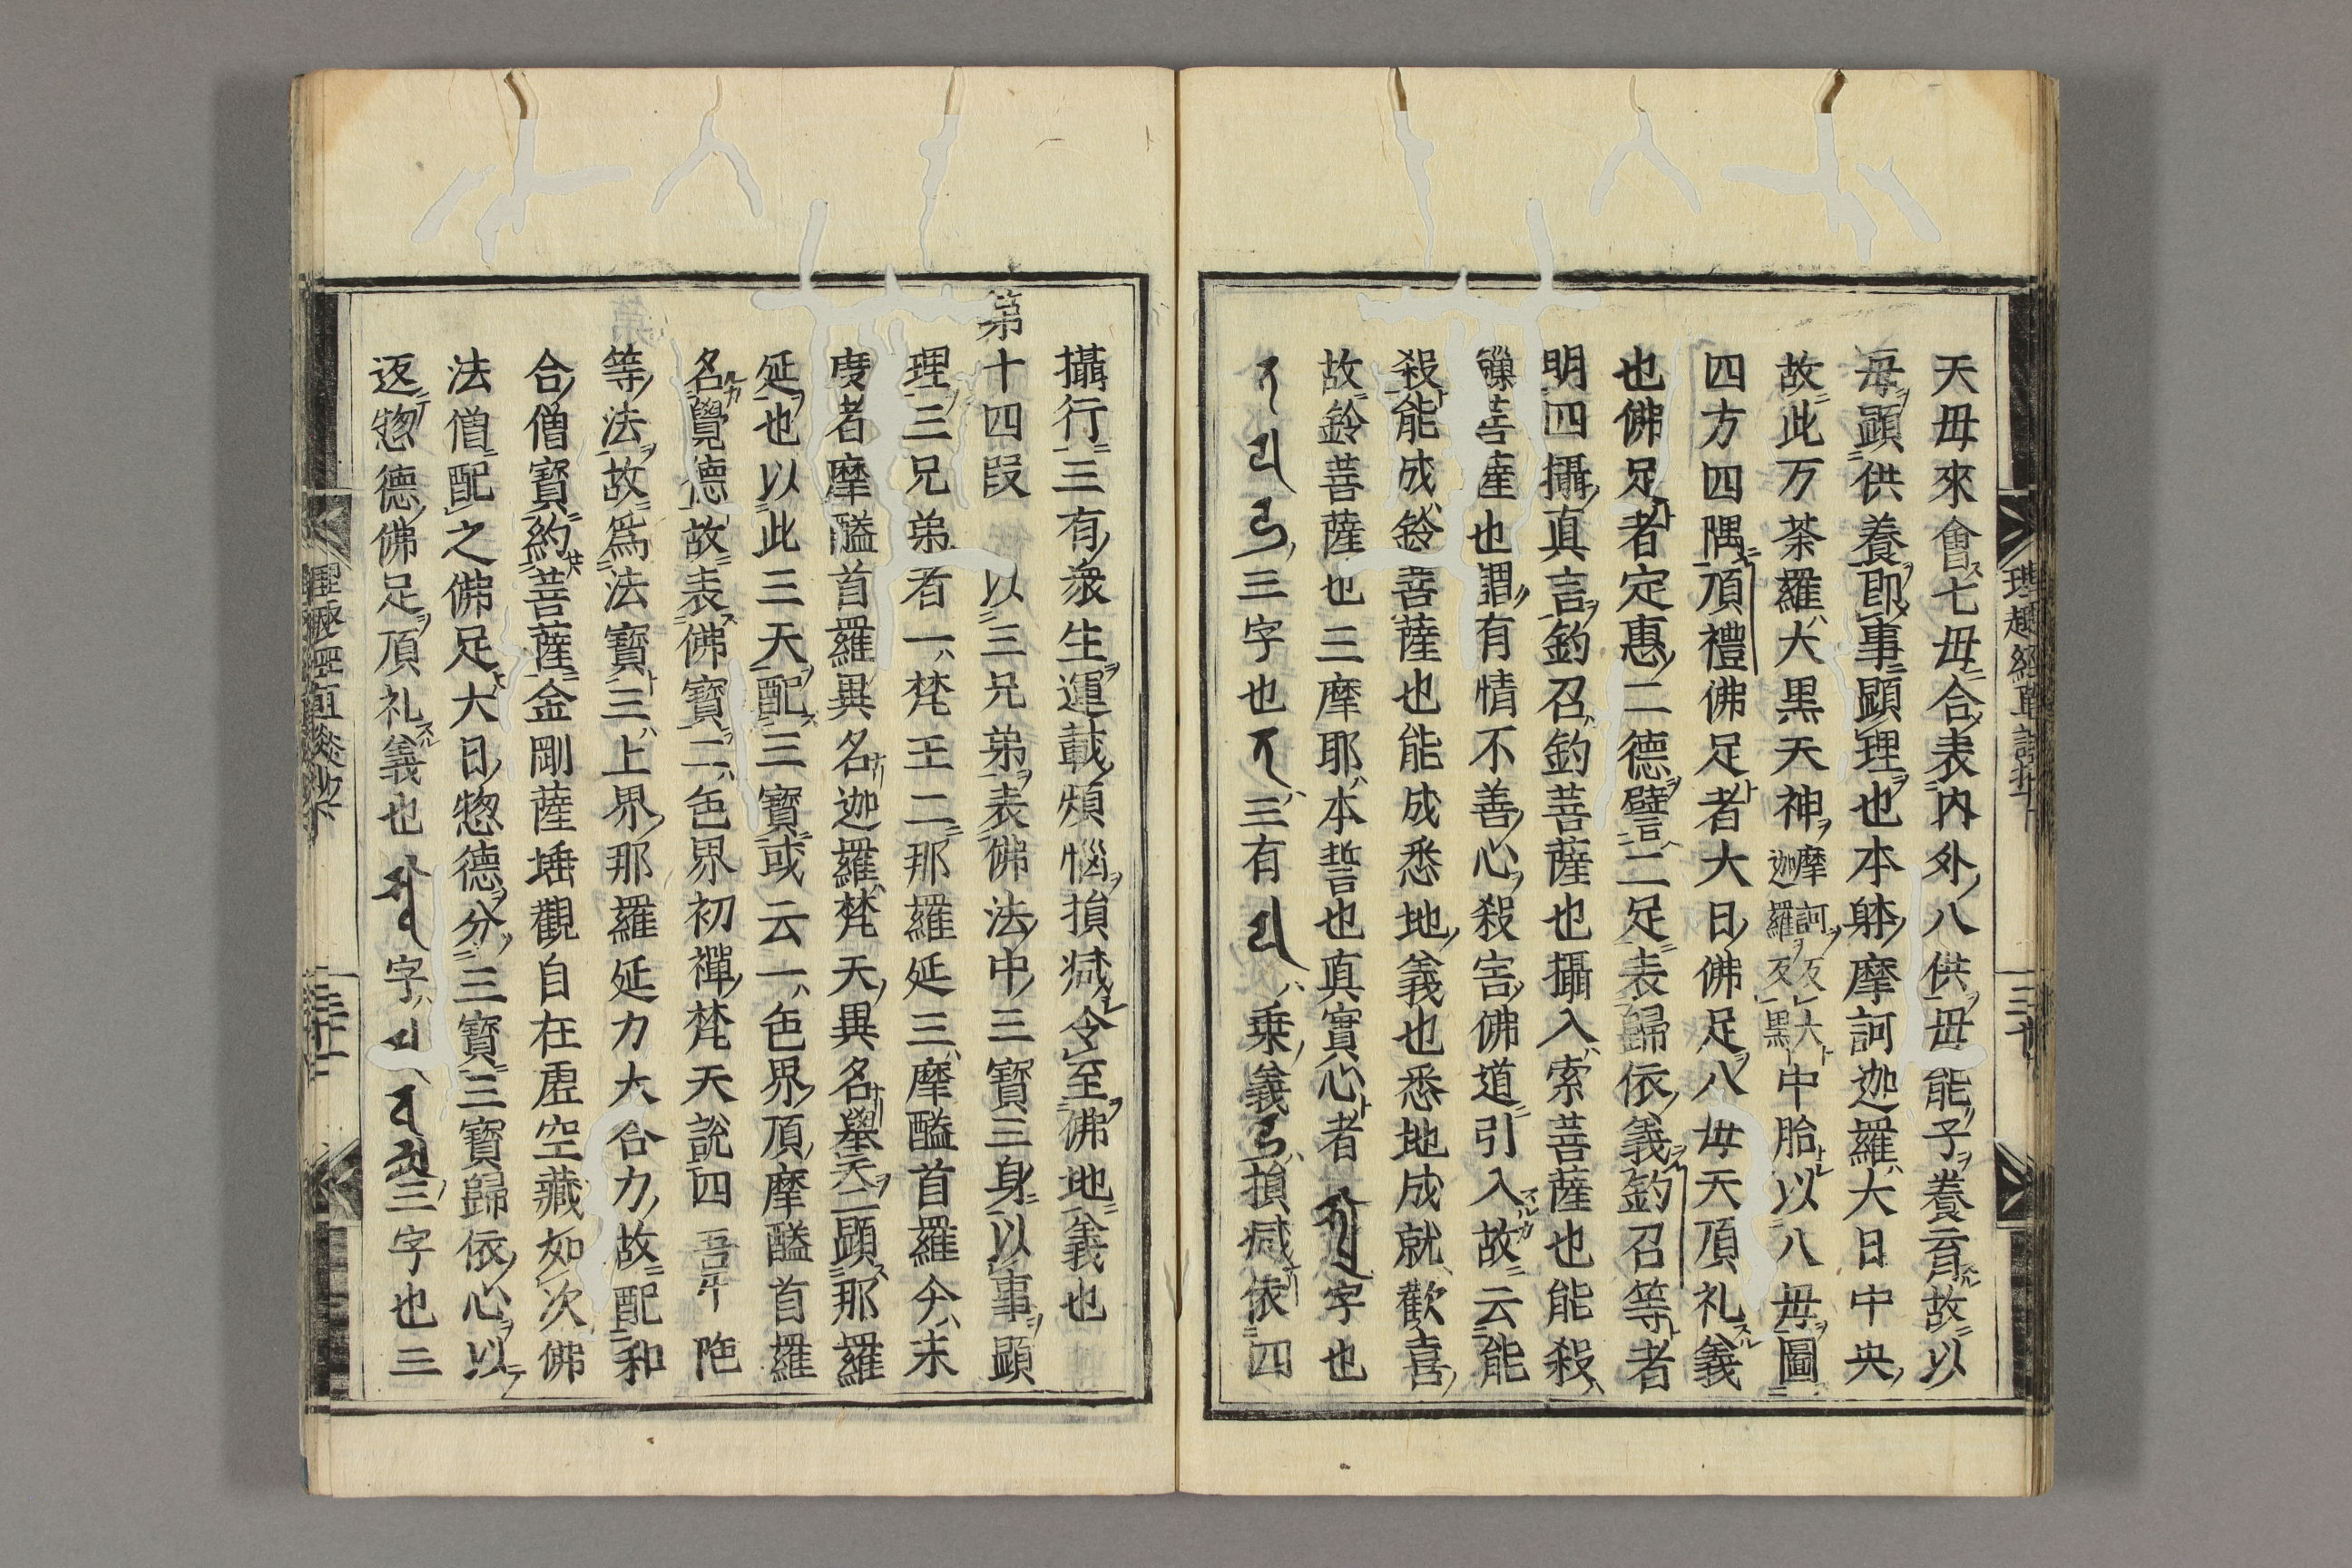 天毋來會七毋合表内外八供毋能子養育故以
毋顕供養即事顕理也本躰摩訶迦羅大日中央
故此万荼羅大黒天神摩訶反大迦羅反黒中胎以八毋圖
四方四隅頂禮佛足者大日佛足八毋天頂礼義
也佛足者定惠二德譬二足表歸依義釣召等者
明四攝真言釣召釣菩薩也攝入索菩薩也能殺
鏁菩薩也謂有情不善心殺害佛道引入故云能
殺能成鈴菩薩也能成悉地義也悉地成就歡喜
故鈴菩薩也三摩耶本誓也真實心者字也
三字也三有乗義損减依四
攝行三有衆生運載煩惱損减令至佛地義也
第十四叚以三兄弟表佛法中三寳三身以事顕
理三兄弟者一梵王二那羅延三摩醯首羅今末
度者摩醯首羅異名迦羅梵天異名擧天二顕那羅
延也以此三天配三寳或云一色界頂摩醯首羅
名覺德故表佛寳二色界初禪梵天説四吾平陁
等法故為法寳三上界那羅延力大合力故配和
合僧寳約菩薩金剛薩埵觀自在虚空藏如次佛
法僧配之佛足大日惣德分三寳三寳歸依心以
返惣德佛足頂礼義也字三字也三